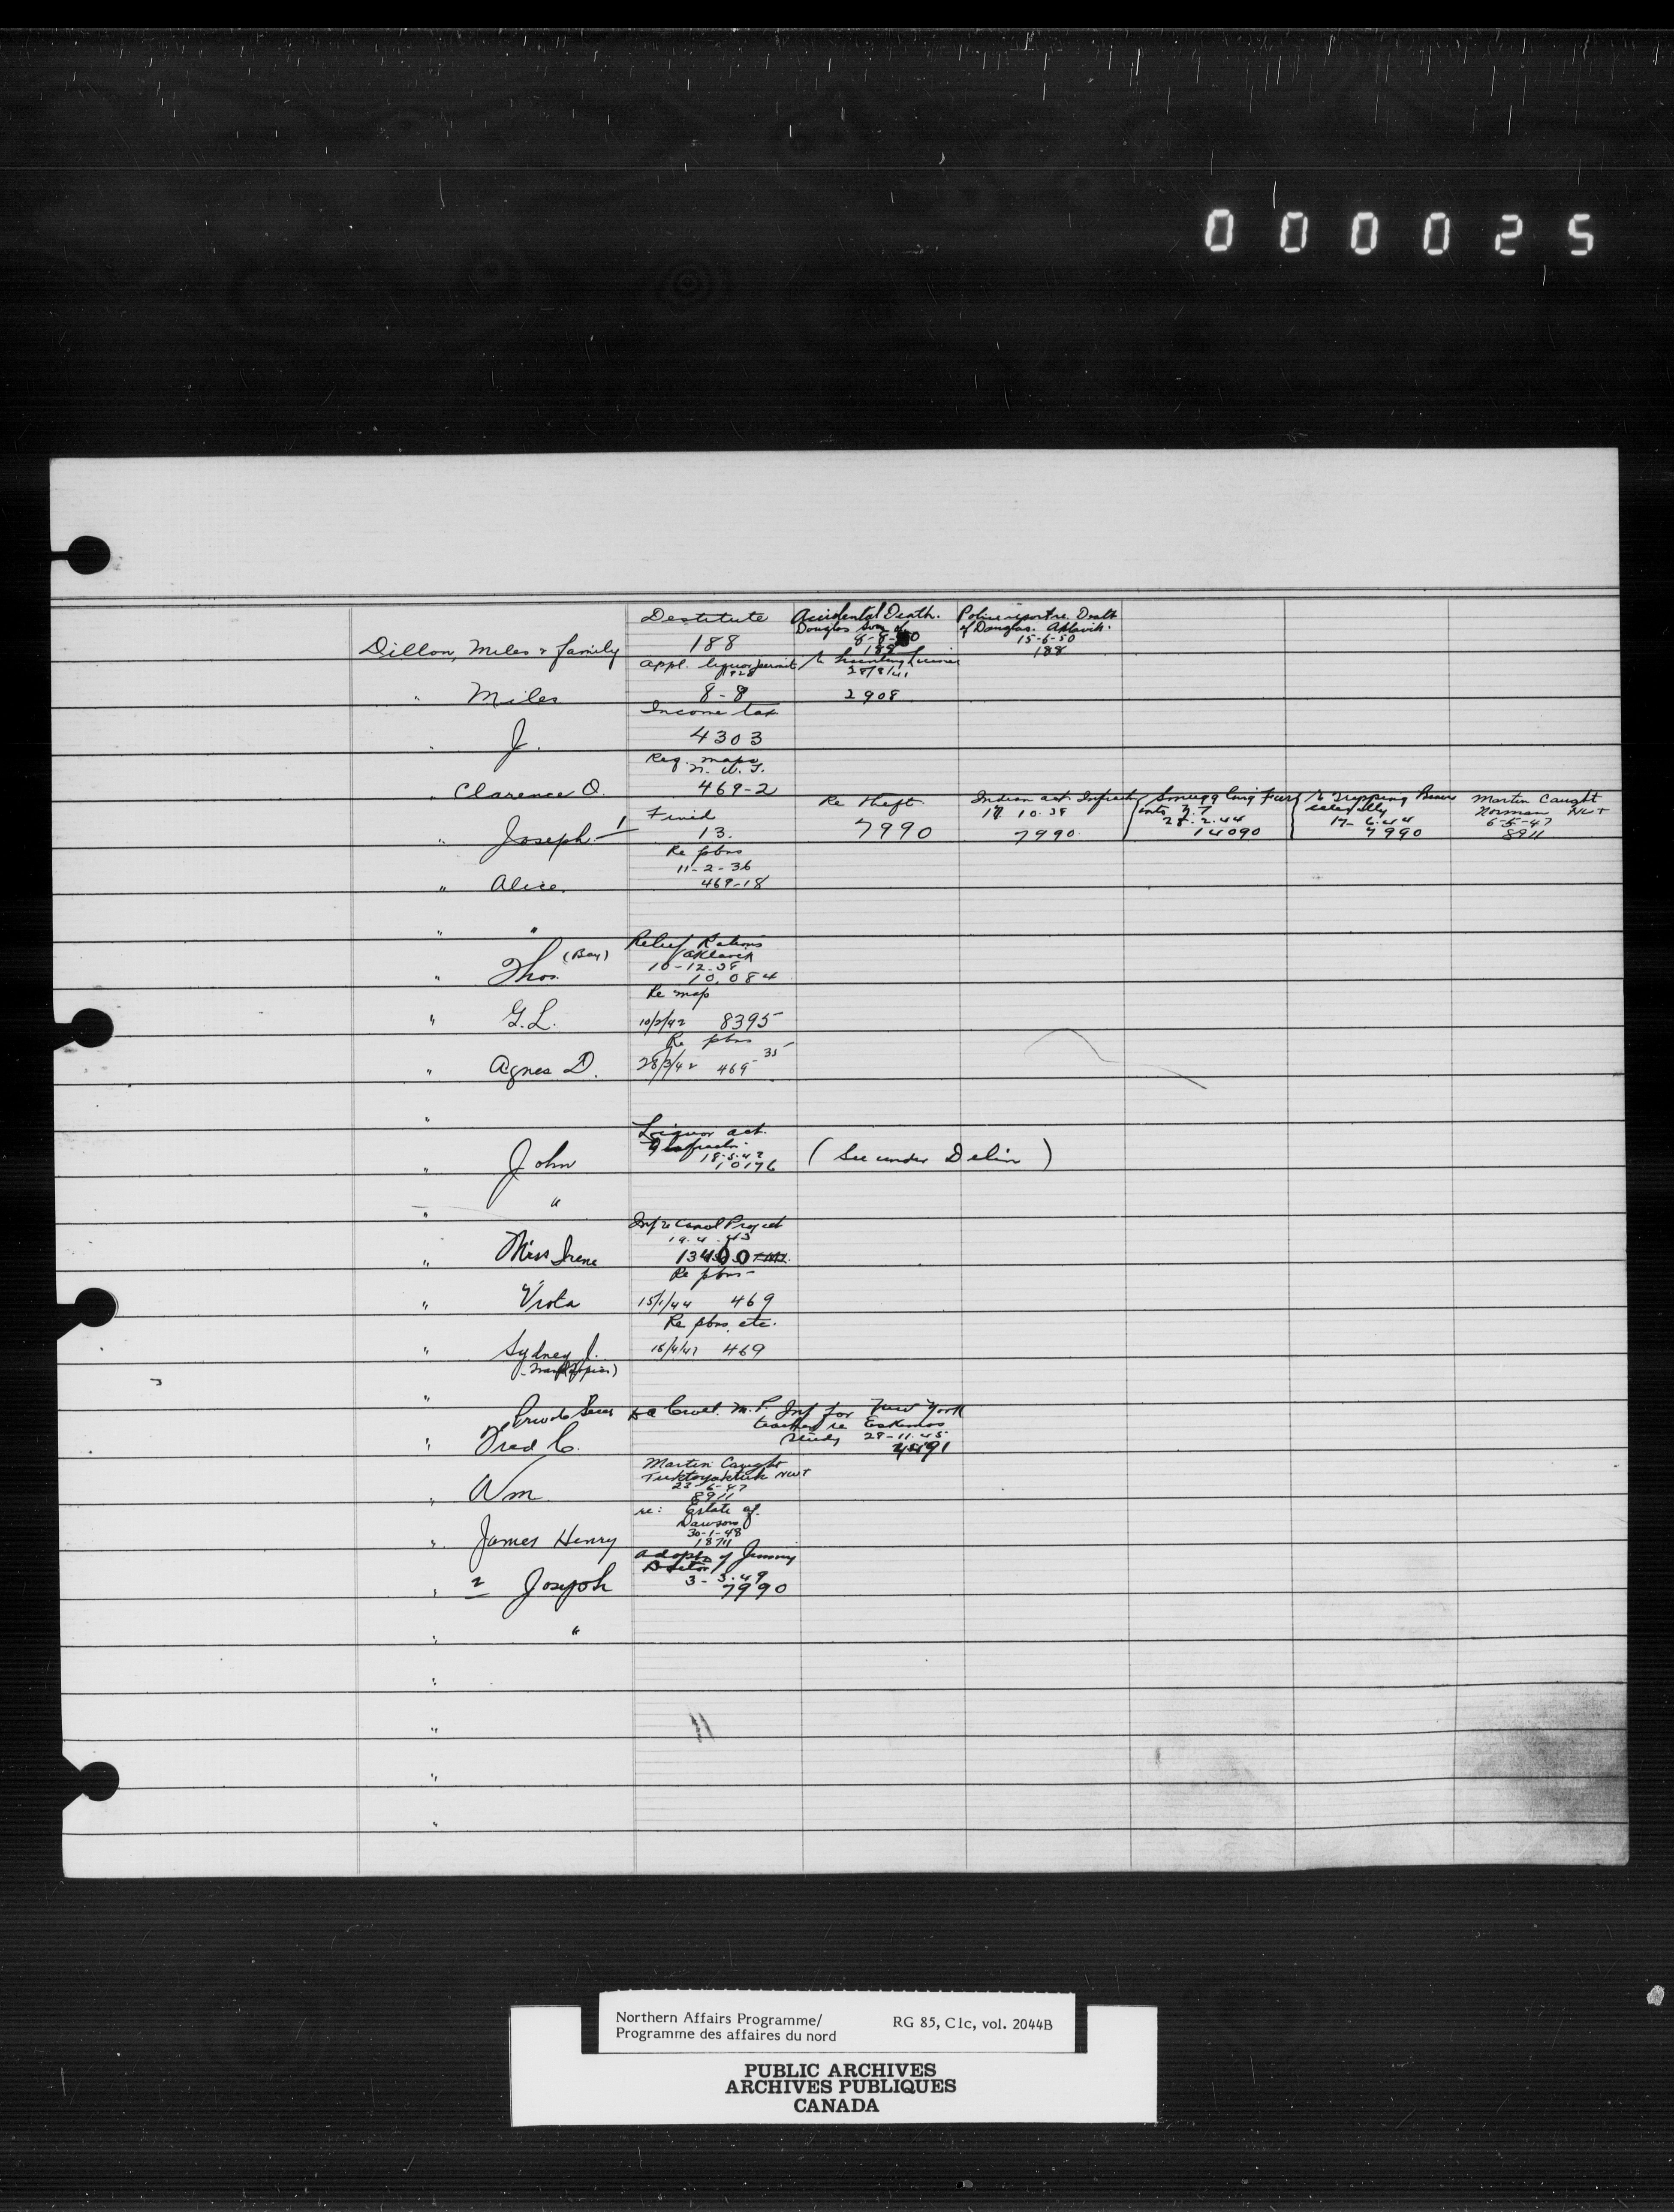 000025
Destitute
188
Accidental Death.
Douglas Son of
8-8-50
188
Police report re. Death
of Douglas. Aklavik.
15-6-50
188
Dillon, Miles & family
Appl. liquor permit
1928
8-8
re hunting license
28/8/41
2908
" Miles
Income tax
4303
" J.
Req. maps
N.W.T.
469-2
" Clarence O.
Fined
13.
Re theft
7990
Indian act
17.10.38
7990
Smuggling Furs
into
28.2.44
14090
re Trapping Beaver
illegally
17-6-44
7990
Marten Caught
Norman NWT
6-5-47
8911
" Joseph 1
Re pbns
11-2-36
469-18
" Alice
" "
Relief Rations
Aklavik
10-12-38
10,084
" Thos. (Boy)
Re map
10/2/42 8395
" G.L.
Re pbns
28/3/42 469-35
" Agnes D.
"
Liquor act
18-5-42
10176
" John
(See under Delin)
" "
Inf re Canol Project
19.4.43
13400
" Miss Irene
Re pbns
15/1/44 469
" Viola
Re pbns. etc.
469
" Sydney J.
"
Private Secy
M.P. Inf for New York
teacher re Eskimos
study 28-11-45
" Fred C.
Marten Caught
Tuktoyaktuk NWT
23-6-47
8911
" Wm
re: Estate of
Dawson
30-1-48
18711
" James Henry
adoptn of Jimmy
3-3-49
7990
" 2 Joseph
" "
"
"
"
"
Northern Affairs Programme/
Programme des affaires du nord
RG 85, C1c, vol. 2044B
PUBLIC ARCHIVES
ARCHIVES PUBLIQUES
CANADA